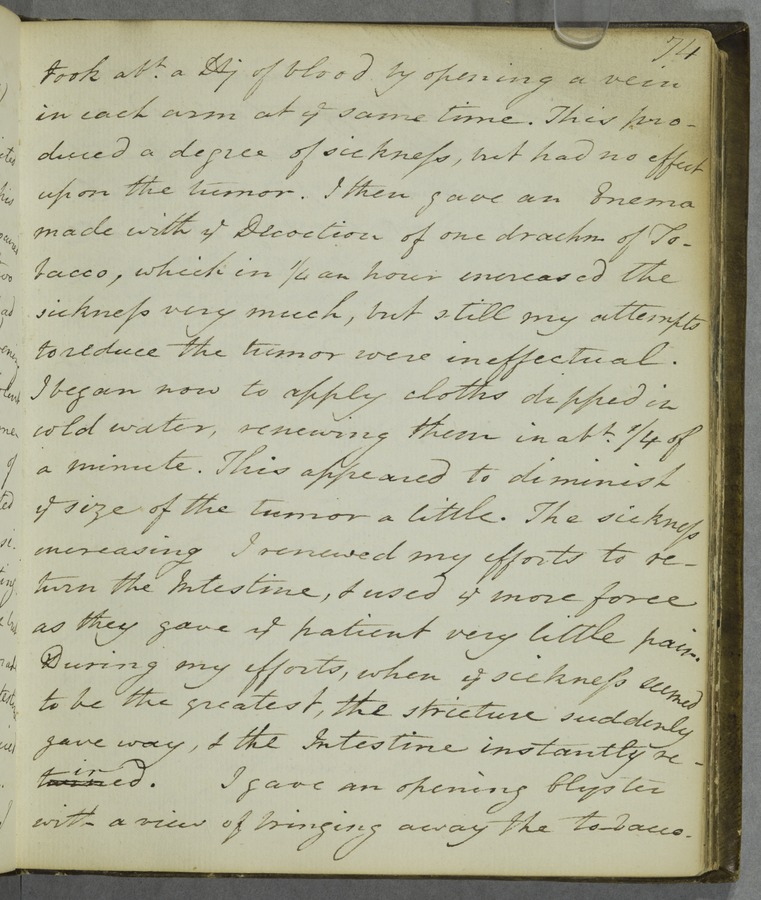 74
took abt. a ℔j of blood by opening a vein
in each arm at ye same time. This pro-
duced a degree of sickness, but had no effect
upon the tumor. I then gave an Enema
made with ye Decoction of one drachm of To-
bacco, which in 1/4 an hour increased the
sickness very much, but still my attempts
to reduce the tumor were ineffectual.
I began now to apply cloths dipped in
cold water, renewing them in abt. 1/4 of
a minute. This appeared to diminish
ye size of the tumor a little. The sickness
increasing I renewed my efforts to re-
turn the Intestine, & used ye more force
as they gave ye patient very little pain.
During my efforts, when ye sickness seemed
to be the greatest, the stricture suddenly
gave way, & the Intestine instantly re-
tired. I gave an opening Clyster
with a view of bringing away the tobacco.